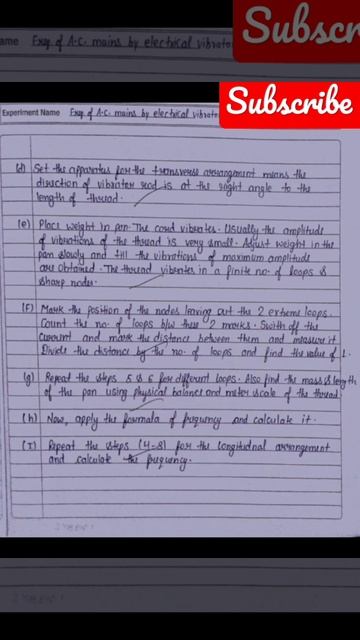 Subscr
ame Freq. of A.C. mains by electrical vibrator
Subscribe
Experiment Name Freq. of A.C. mains by electrical vibrator
(d) Set the apparatus for the transverse arrangement means the
direction of vibrator rod is at the right angle to the
length of thread.
(e) Place weight in pan. The cord vibrates. Usually the amplitude
of vibrations of the thread is very small. Adjust weight in the
pan slowly and till the vibrations of maximum amplitude
are obtained. The thread vibrates in a finite no. of loops &
sharp nodes.
(f) Mark the position of the nodes leaving out the 2 extreme loops.
Count the no. of loops b/w these 2 marks. Swith off the
current and mark the distance between them and measure it.
Divide the distance by the no. of loops and find the value of l.
(g) Repeat the steps 5 & 6 for different loops. Also find the mass & length
of the pan using physical balance and meter scale of the thread
(h) Now, apply the formala of frequncy and calculate it.
(I) Repeat the steps (4-8) for the longitudnal arrangement
and calculate the frequency.